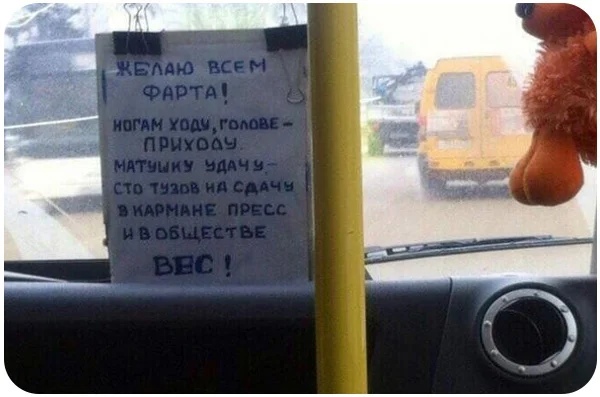 ЖЕЛАЮ ВСЕМ
ФАРТА!
НОГАМ ХОДУ, ГОЛОВЕ-
ПРИХОДУ.
МАТУШКУ УДАЧУ-
СТО ТУЗОВ НА СДАЧУ
В КАРМАНЕ ПРЕСС
И В ОБЩЕСТВЕ
ВЕС!